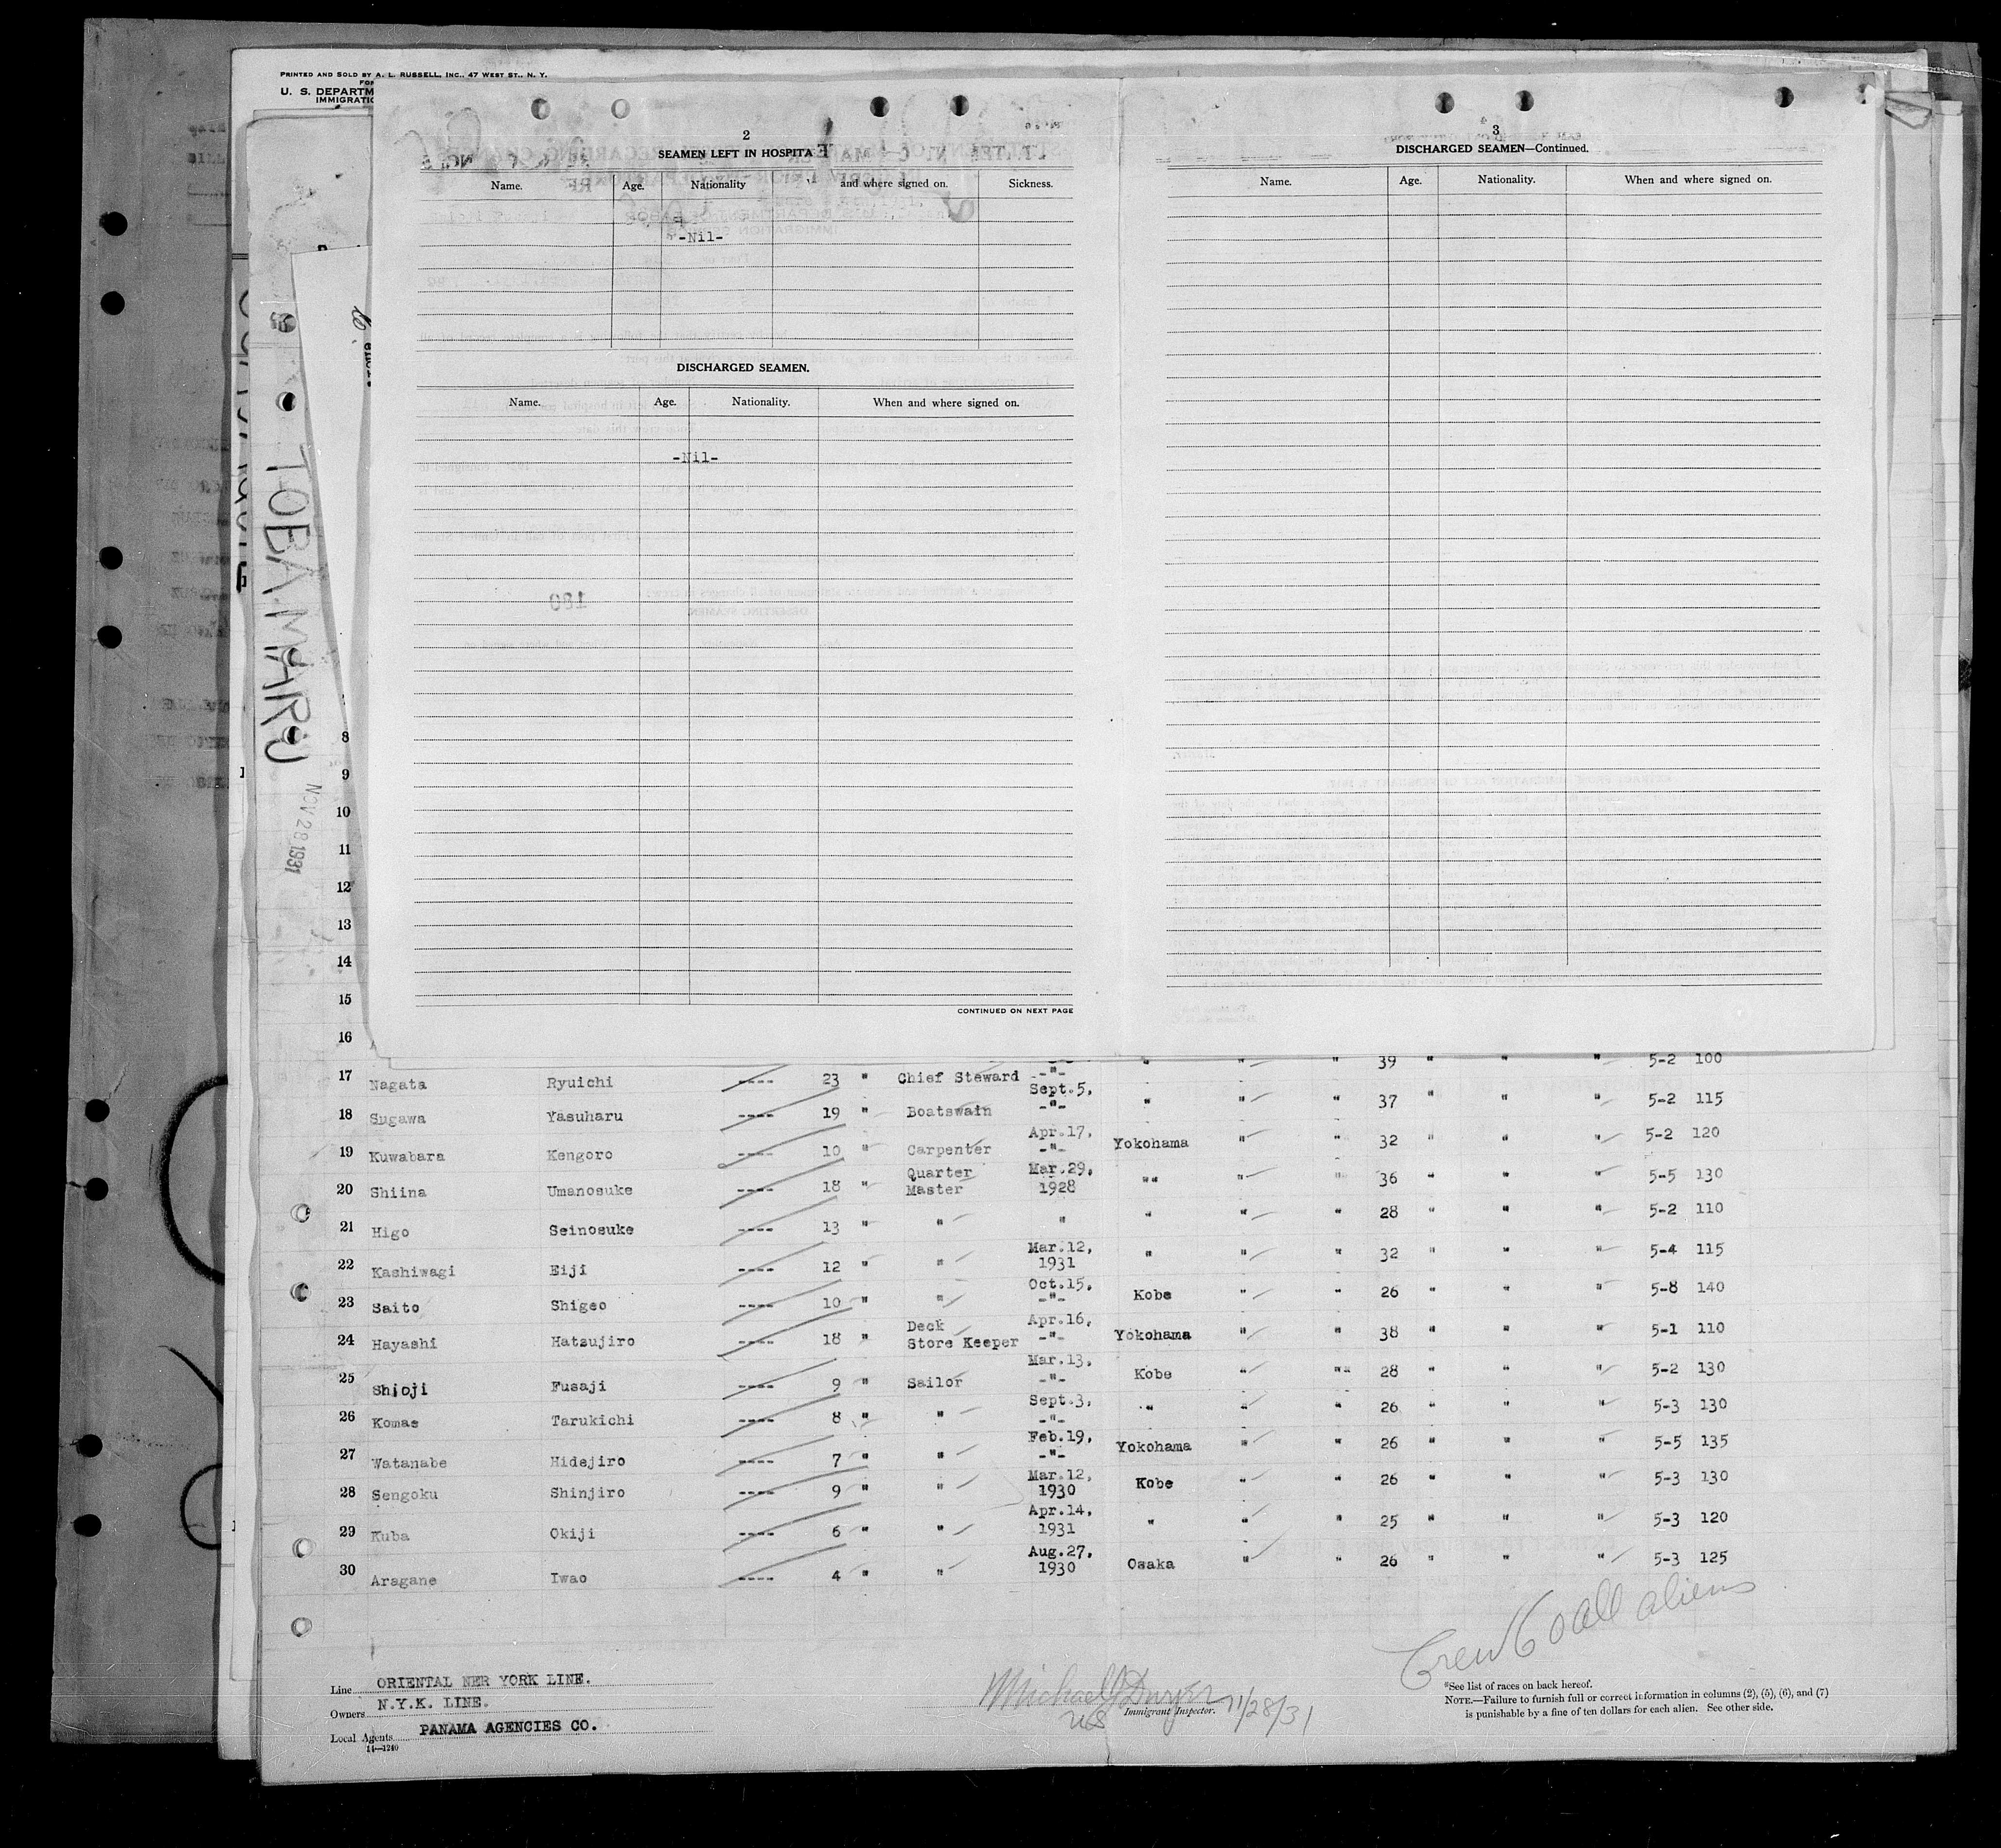 PRINTED AND SOLD BY A. L. RUSSELL, INC., 47 WEST ST., N. Y.
U. S. DEPARTM
IMMIGRATIO
TOBA MARU
NOV 28 1931
2
SEAMEN LEFT IN HOSPITA
Name. Age. Nationality and where signed on. Sickness.
-Nil-
DISCHARGED SEAMEN.
Name. Age. Nationality. When and where signed on.
-Nil-
180
CONTINUED ON NEXT PAGE
3
DISCHARGED SEAMEN—Continued.
Name. Age. Nationality. When and where signed on.
8
9
10
11
12
13
14
15
16 " " " 39 " " " 5-2 100
17 Nagata Ryuichi ---- 23 " Chief Steward -"- Sept.5, " " " 37 " " " 5-2 115
18 Sugawa Yasuharu ---- 19 " Boatswain -"- Apr.17, Yokohama " " 32 " " " 5-2 120
19 Kuwabara Kengoro ---- 10 " Carpenter -"-
20 Shiina Umanosuke ---- 18 " Quarter Master Mar.29, 1928 " " " 36 " " " 5-5 130
21 Higo Seinosuke ---- 13 " " " " " " 28 " " " 5-2 110
22 Kashiwagi Eiji ---- 12 " " Mar.12, 1931 " " " 32 " " " 5-4 115
23 Saito Shigeo ---- 10 " " Oct.15, -"- Kobe " " 26 " " " 5-8 140
24 Hayashi Hatsujiro ---- 18 " Deck Store Keeper Apr.16, -"- Yokohama " " 38 " " " 5-1 110
25 Shioji Fusaji ---- 9 " Sailor Mar.13, -"- Kobe " " 28 " " " 5-2 130
26 Komae Tarukichi ---- 8 " " Sept.3, -"- " " " 26 " " " 5-3 130
27 Watanabe Hidejiro ---- 7 " " Feb.19, -"- Yokohama " " 26 " " " 5-5 135
28 Sengoku Shinjiro ---- 9 " " Mar.12, 1930 Kobe " " 26 " " " 5-3 130
29 Kuba Okiji ---- 6 " " Apr.14, 1931 " " " 25 " " " 5-3 120
30 Aragane Iwao ---- 4 " " Aug.27, 1930 Osaka " " 26 " " " 5-3 125
Crew 60 all aliens
Line ORIENTAL NER YORK LINE.
Owners N.Y.K. LINE.
Local Agents PANAMA AGENCIES CO.
14—1240
Michael J Dwyer 11/28/31
US Immigrant Inspector.
*See list of races on back hereof.
NOTE.—Failure to furnish full or correct information in columns (2), (5), (6), and (7)
is punishable by a fine of ten dollars for each alien. See other side.